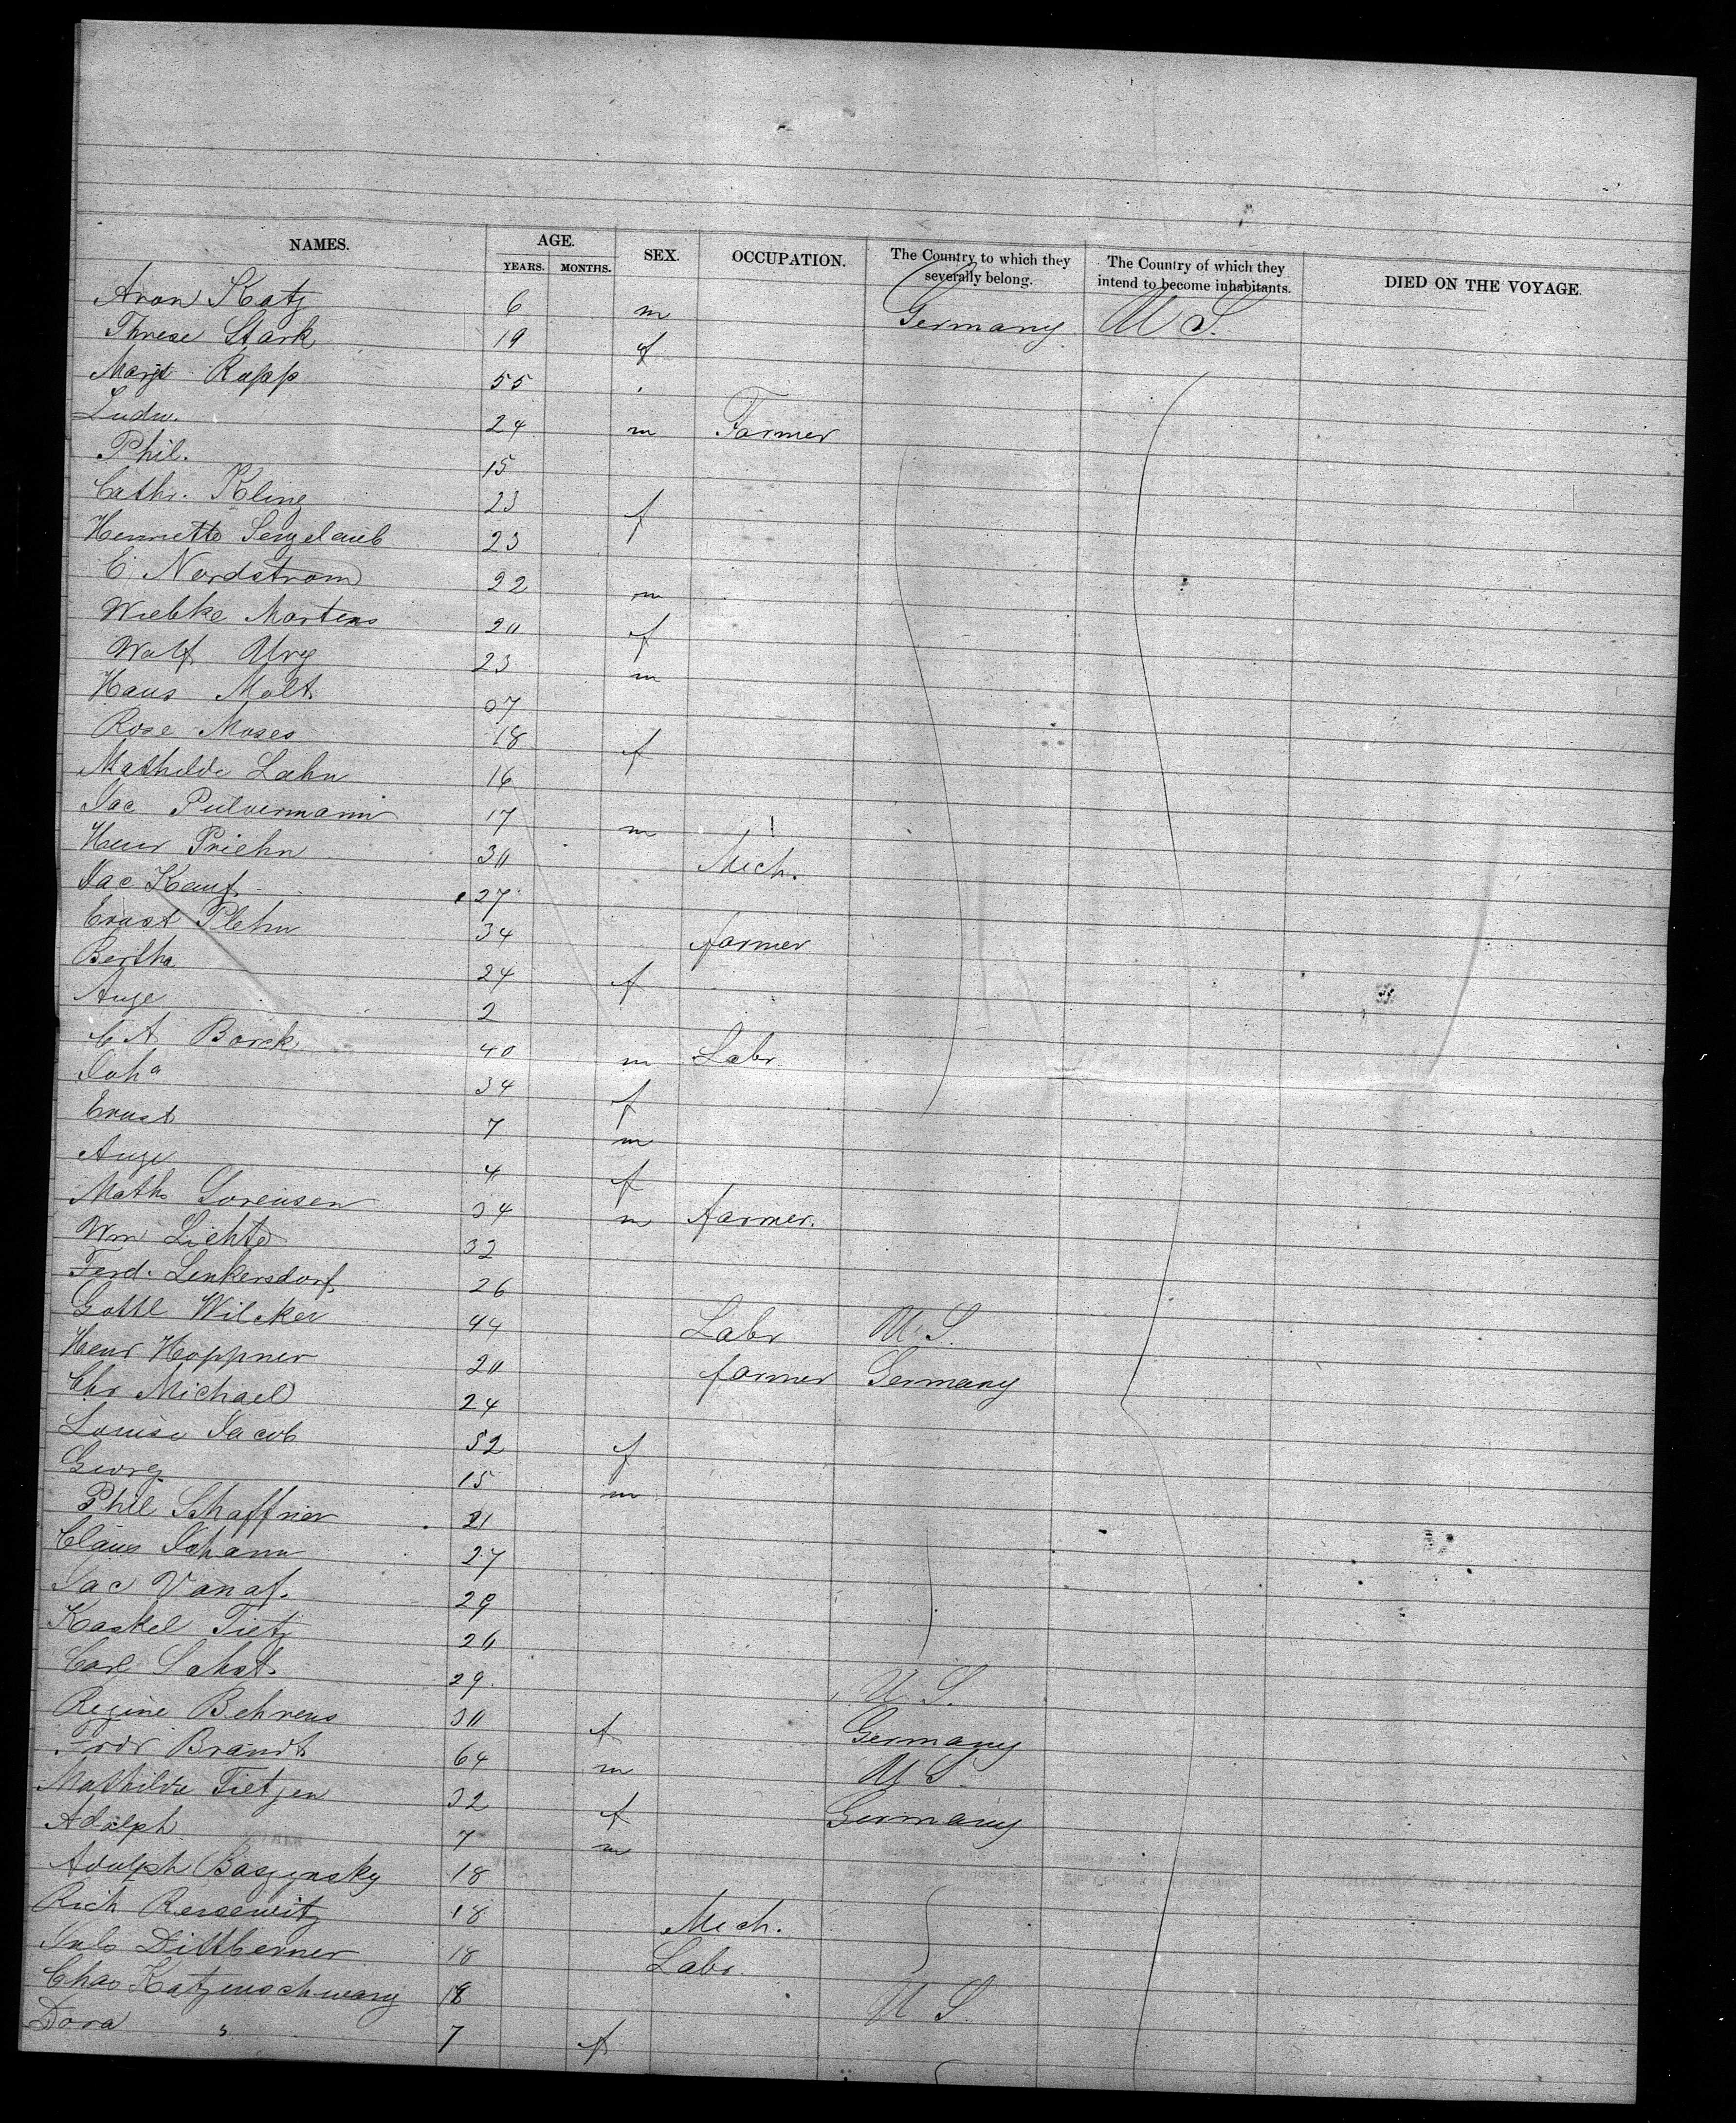 NAMES. AGE. SEX. OCCUPATION. The Country to which they severally belong. The Country of which they intend to become inhabitants. DIED ON THE VOYAGE.
YEARS. MONTHS.
Aron Katz 6 m Germany U S.
Threse Stark 19 f
Margt Rapp 55
Ludw. 24 m Farmer
Phil. 15
Cathr. Kling 23 f
Henriette 23
E. Nordstrom 22 m
Wiebke Martens 20 f
Wolf 23 m
Hans Molt 07
Rose Moses 18 f
Mathilde Lahn 16
Jac Pulvermann 17 m
Henr Priehn 30 Mich.
Jac Kauf 27
Ernst Plehn 34 farmer
Bertha 24 f
Auge 2
C A Borck 40 m Labr
Joha 34 f
Ernst 7 m
Auge 4 f
Maths Sorensen 34 m farmer.
Wm Lichte 32
Ferd. Lenkersdorf 26
Gottl Wilcker 44 Labr U S.
Henr Hoppner 20 farmer Germany
Chr Michael 24
Louise Jacob 52 f
Georg 15 m
Phil Schaffner 21
Claus Johann 27
Jac Vanaf. 29
Kaskel Tietz 26
Carl 29. U S.
Regine Behrens 30 f Germany
Fredr Brandt 64 m U S.
Mathilde Tietjen 32 f Germany
Adolph 7 m
Adolph 18
Rich 18 Mech.
Dittberner 18 Labr.
Chas Katzenschwanz 18 U S.
Dora " 7 f